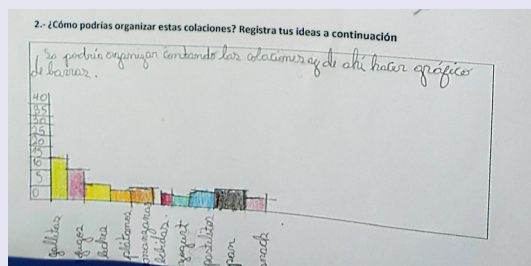 2.- ¿Cómo podrías organizar estas colaciones? Registra tus ideas a continuación
Se podría organizar contando las colaciones y de ahí hacer gráfico
de barras.
40
35
30
25
20
15
10
5
0
galletas
jugos
leche
plátanos
manzanas
bebidas.
yogurt
pastelitos
pan
snack